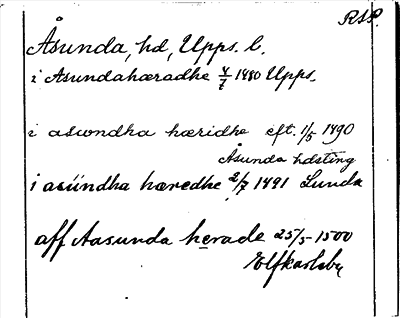 RAP.
Åsunda, hd, Upps. l.
i Asundahæradhe 4/7 1480 Upps.
i aswndha hæridhe eft. 1/5 1490
Åsunda hdsting
i asündha hæredhe 2/7 1491 Lunda
aff Aasunda herade 25/5 1500
Elfkarleby